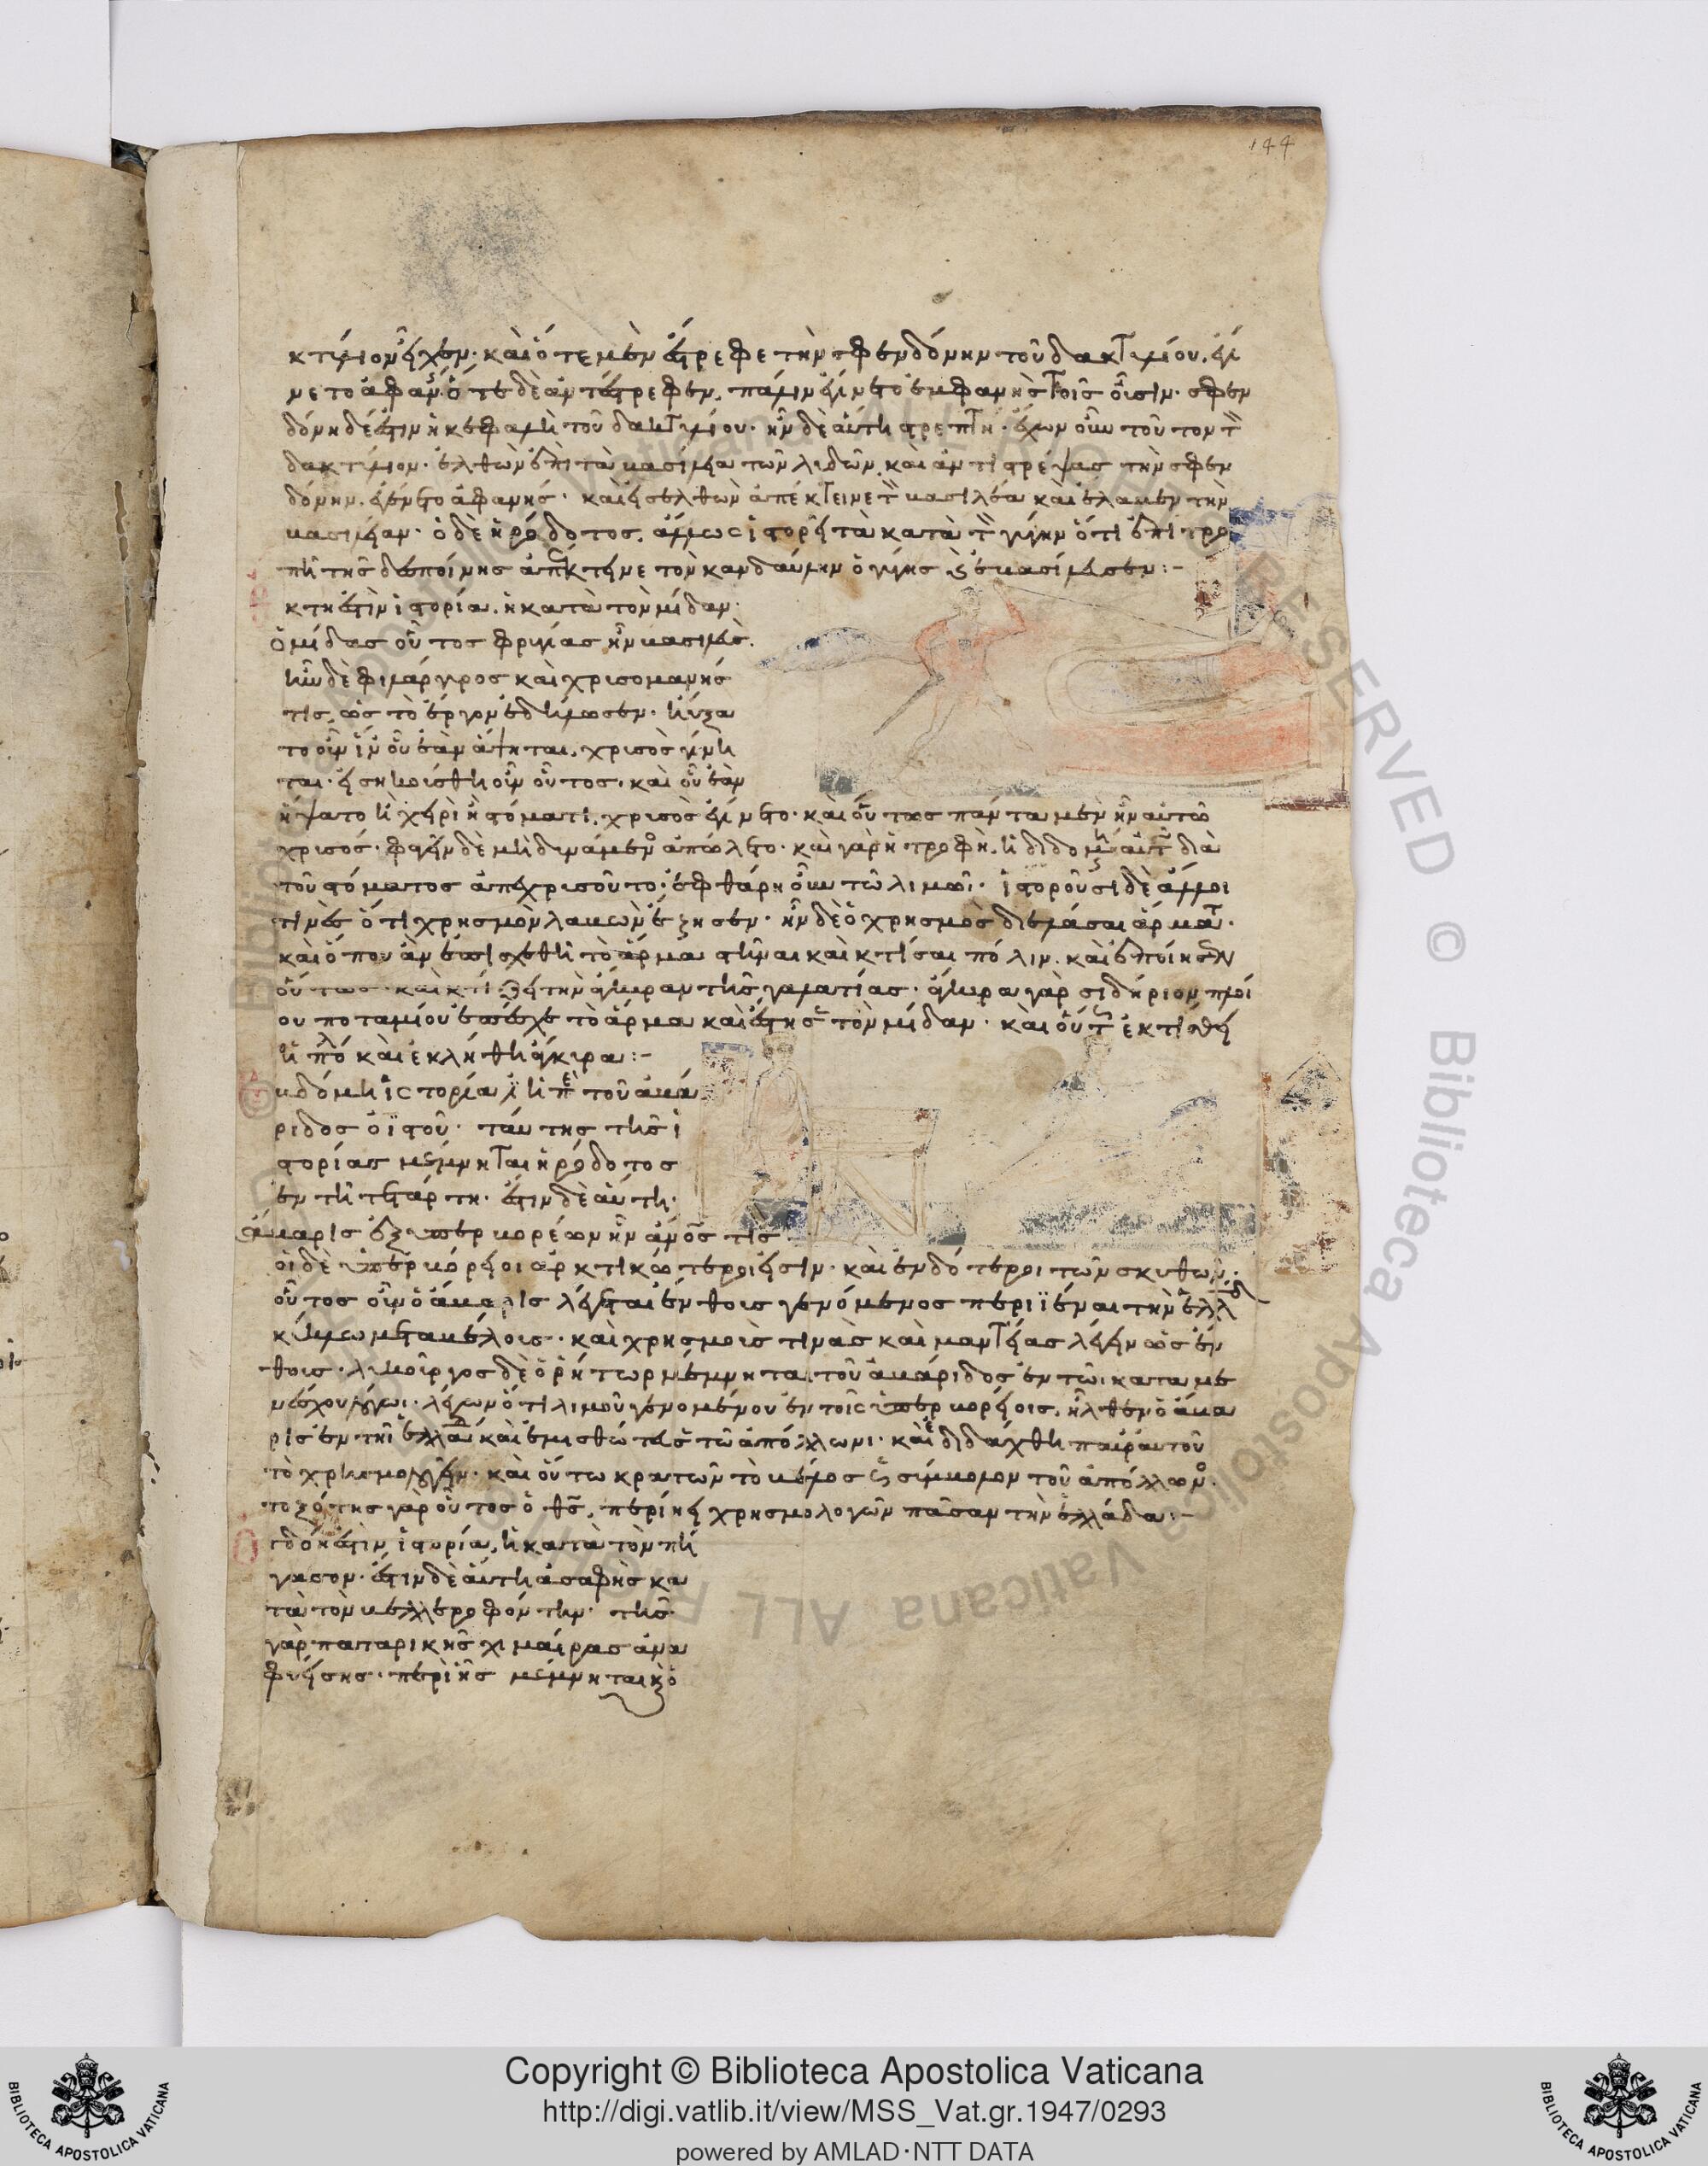 144
κτύλιον εἶχεν· καὶ ὅτε μὲν ἔστρεφε τὴν σφενδόνην τοῦ δακτυλίου, ἐγί
νετο ἀφανής· ὅτε δὲ ἀντέστρεφεν, πάλιν ἐγίνετο ἐμφανὴς τοῖς οὖσιν· σφεν
δόνη δέ ἐστιν ἡ κεφαλὴ τοῦ δακτυλίου· ἦν δὲ αὕτη στρεπτή· ἔχων οὖν τοῦτον τὸν
δακτύλιον· ἐλθὼν ἐπὶ τὰ βασίλεια τῶν λυδῶν, καὶ ἀντιστρέψας τὴν σφεν
δόνην, ἐγένετο ἀφανής· καὶ εἰσελθὼν ἀπέκτεινε τὸν βασιλέα καὶ ἔλαβεν τὴν
βασιλείαν· ὁ δὲ ἡρόδοτος, ἄλλως ἱστορεῖ τὰ κατὰ τὸν γύγην ὅτι ἐπιτρο
πῇ τῆς δεσποίνης ἀπέκτεινε τὸν κανδαύλην ὁ γύγης καὶ ἐβασίλευσεν :-
κτη ἐστὶν ἱστορία, ἡ κατὰ τὸν μίδαν·
ὁ μίδας οὗτος φρυγίας ἦν βασιλεύς.
ἦν δὲ φιλάργυρος καὶ χρυσομανής
τις, ὡς τὸ ἔργον ἐδήλωσεν· ηὔξα
το οὖν ἵν οὗ ἐὰν ἅψηται, χρυσὸς γένη
ται· οὖν οὗτος, καὶ οὗ ἐὰν
ἥψατο ἢ χειρὶ ἢ στόματι, χρυσὸς ἐγίνετο· καὶ οὕτως πάντα μὲν ἦν αὐτῶ
χρυσός· φαγεῖν δὲ μὴ δυνάμενος ἀπώλετο· καὶ γὰρ ἡ τροφὴ, ἡ διδομένη αὐτῷ διὰ
τοῦ στόματος ἀπεχρυσοῦτο· ἐφθάρη οὖν τῶ λιμῶι· ἱστοροῦσι δὲ ἄλλοι
τινὲς ὅτι χρησμὸν λαβὼν ἔζησεν· ἦν δὲ ὁ χρησμὸς διελάσαι ἅρματ·
καὶ ὅπου ἂν ἐπισχεθῇ τὸ ἅρμα στῆναι καὶ κτίσαι πόλιν, καὶ ἐποίησεν
οὕτως· καὶ κτίζει τὴν ἄγκυραν τῆς γαλατίας· ἄγκυρα γὰρ σιδήριον πλοί
ου ποταμίου ἐπέσχε τὸ ἅρμα καὶ ἔστησε τὸν μίδαν· καὶ οὕτως ἐκτίσθη
ἡ πόλις καὶ ἐκλήθη ἄγκυρα :-
βδόμη ἱστορία ἡ περὶ τοῦ ἀβά
ριδος ὀϊστοῦ· ταύτης τῆς ἱ
στορίας μέμνηται ἡρόδοτος
ἐν τῇ τετάρτῃ· ἔστιν δὲ αὕτη·
ἄβαρις ἐξ ὑπερβορέων ἦν ἄνθρωπός τις
οἱ δὲ ὑπερβόρειοι ἀρκτικώτεροι εἰσὶν· καὶ ἐνδότεροι τῶν σκυθῶν·
οὗτος οὖν ὁ ἄβαρις λέγεται ἔνθους γενόμενος περιϊέναι τὴν ἑλλάδ
κύκλω μετὰ βέλους· καὶ χρησμούς τινας καὶ μαντείας λέγειν ὡς ἔν
θους· λυκοῦργος δὲ ὁ ῥήτωρ μέμνηται τοῦ ἀβάριδος ἐν τῶι κατὰ με
νεσαίχμου λόγωι· λέγων ὅτι λιμοῦ γενομένου ἐν τοῖς ὑπερβορέοις, ἦλθεν ὁ ἄβα
ρις ἐν τῇ ἑλλάδι καὶ ἐμισθώτευσε τῶ ἀπόλλωνι· καὶ ἐδιδάχθη παρ αὐτοῦ
τὸ χρησμολογεῖν· καὶ οὕτω κρατῶν τὸ βέλος ὡς σύμβολον τοῦ ἀπόλλωνος·
τοξότης γὰρ οὗτος ὁ θς, περιήει χρησμολογῶν πᾶσαν τὴν ἑλλάδα :-
γδόη ἐστὶν ἱστορία, ἡ κατὰ τὸν πή
γασον· ἔστιν δὲ αὕτη ἀσαφὴς κα
τὰ τὸν βελλεροφόντην· τῆς
γὰρ παταρικῆς χιμαίρας ἀνα
φυείσης· περὶ ἧς μέμνηται καὶ ὁ
Copyright © Biblioteca Apostolica Vaticana
http://digi.vatlib.it/view/MSS_Vat.gr.1947/0293
powered by AMLAD·NTT DATA
BIBLIOTECA APOSTOLICA VATICANA
BIBLIOTECA APOSTOLICA VATICANA